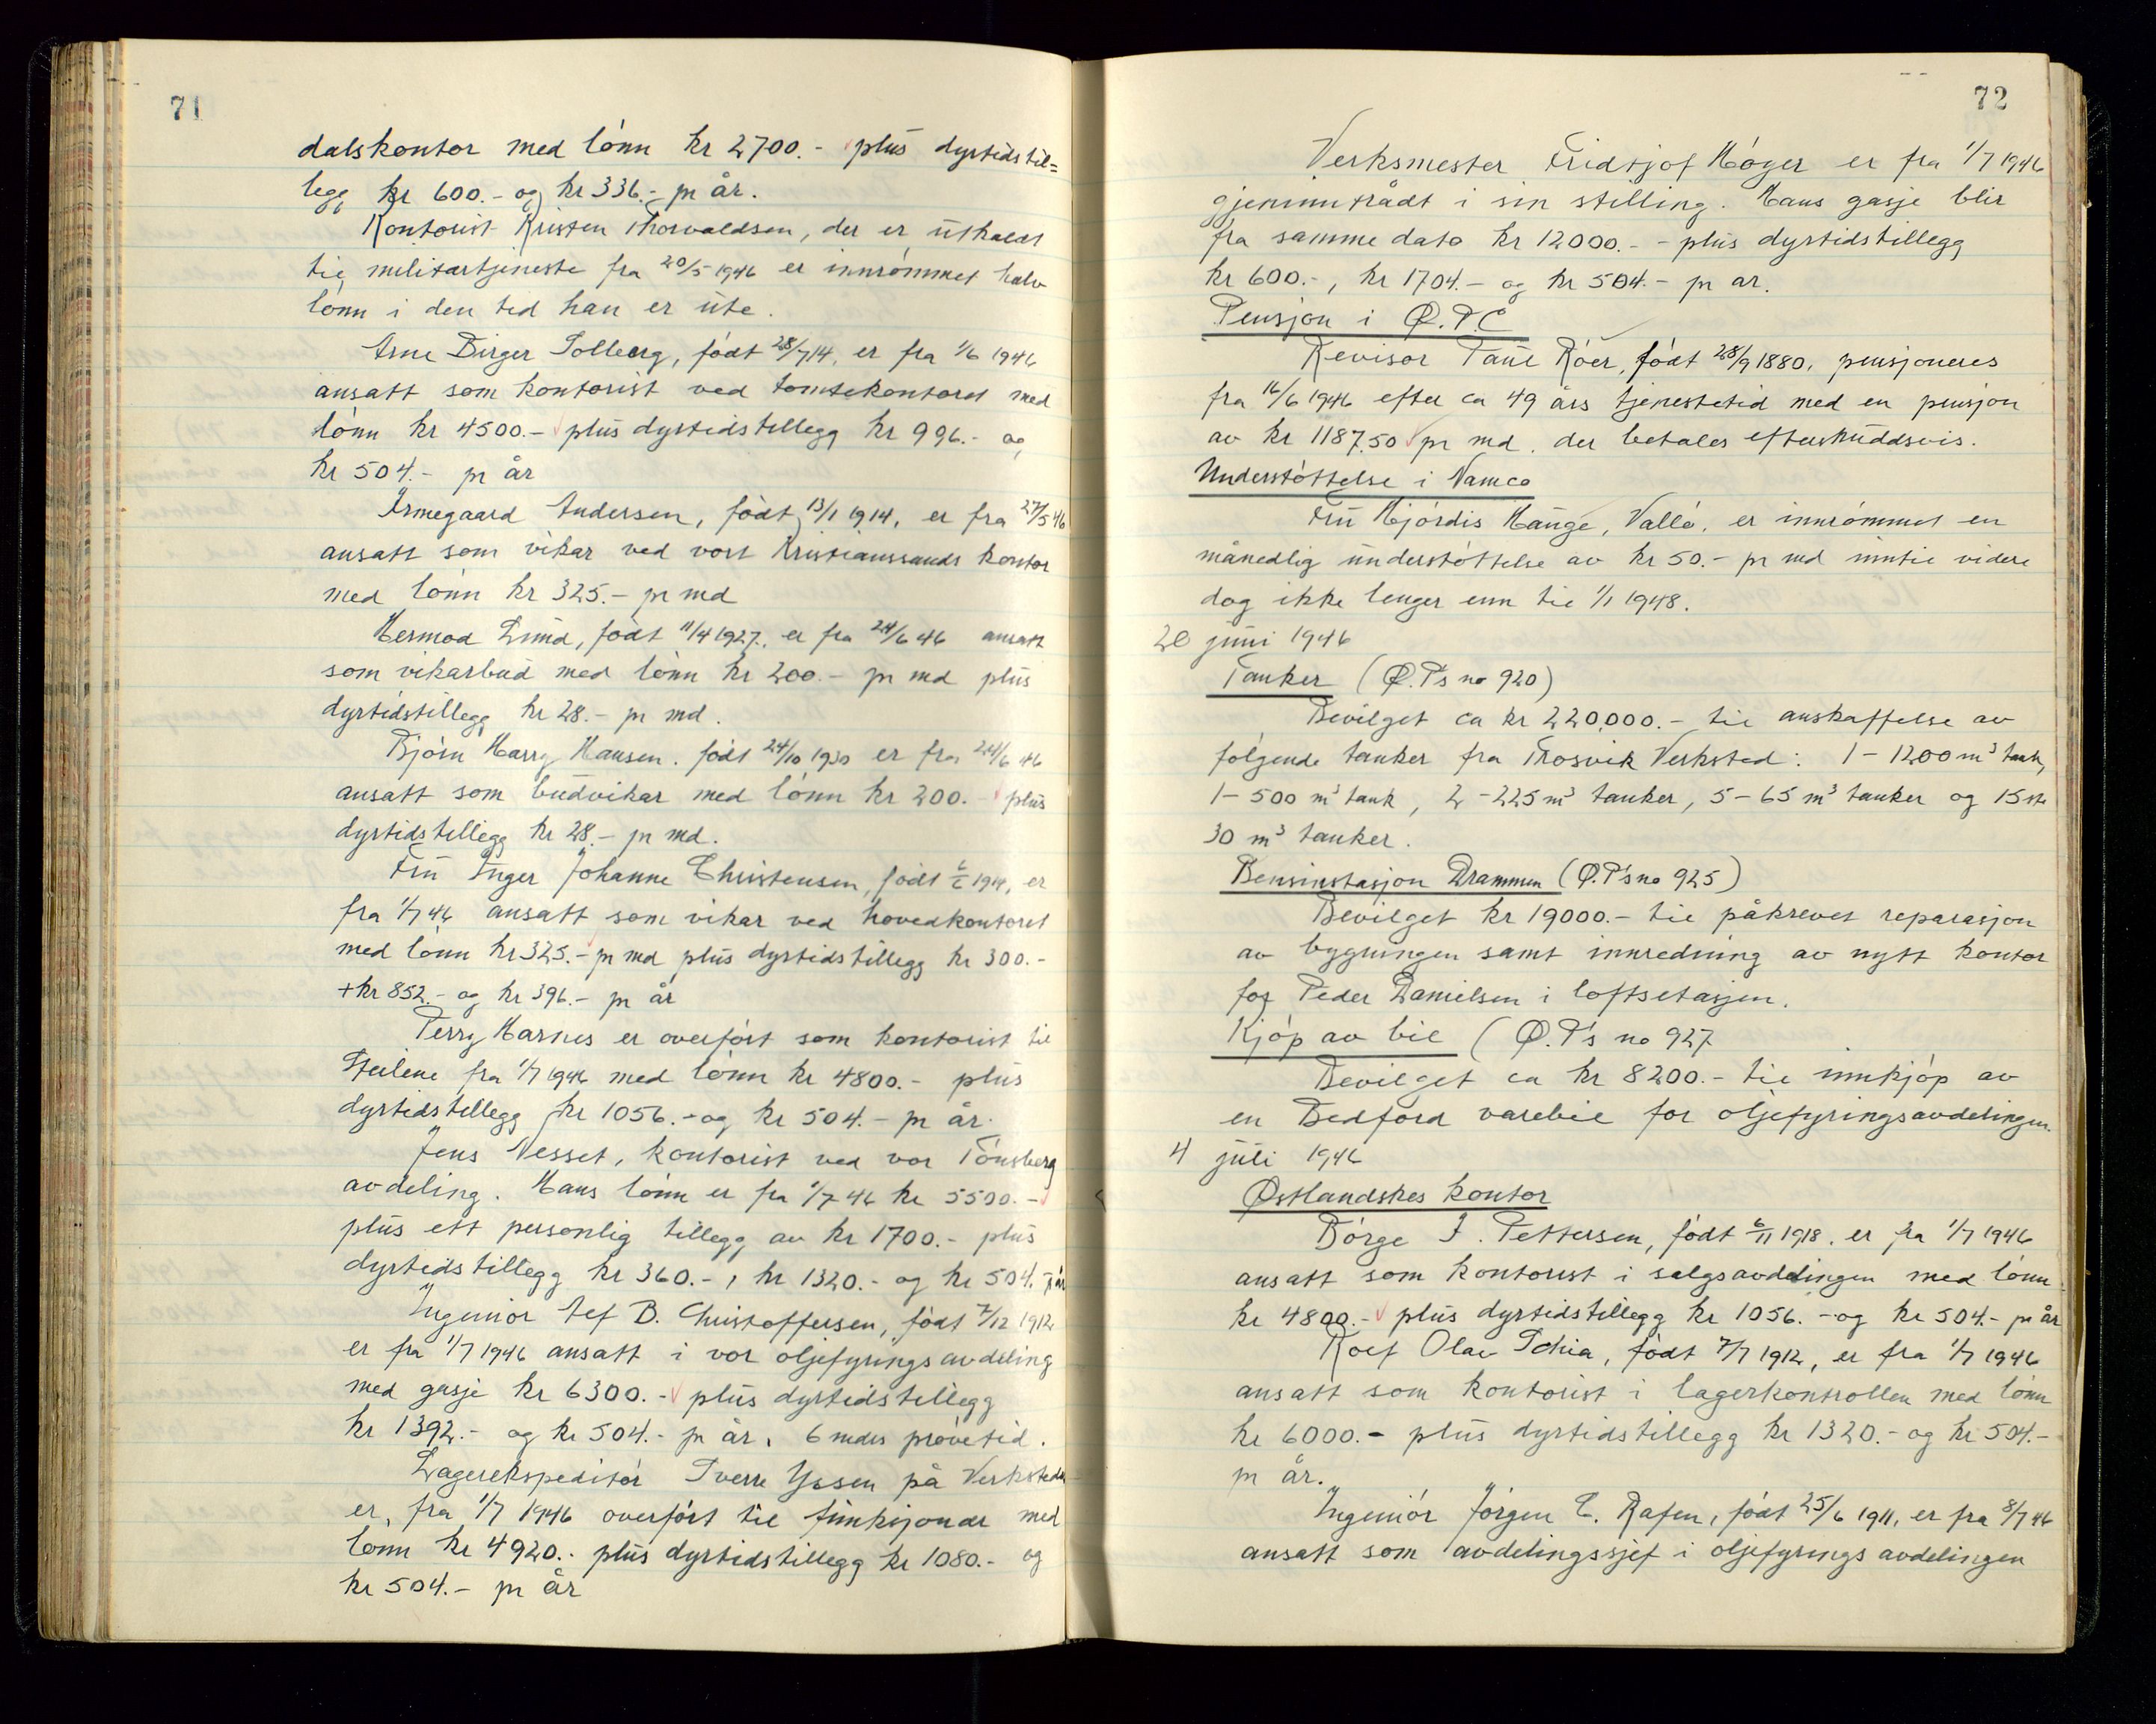 71
dalskontor med lönn kr 2700.- plus dyrtidstil=
legg kr 600.- og kr 336.- pr år.
Kontorist Kristen Thorvaldsen, der er utkaldt
til militærtjeneste fra 20/5 1946 er innrömmet halv
lönn i den tid han er ute.
Arne Birger Solberg, födt 28/7 14, er fra 1/6 1946
ansatt som kontorist ved tomtekontoret med
lönn kr 4500.- plus dyrtidstillegg kr 996.- og
kr 504.- pr år
Irmegaard Andersen, födt 13/1 1914, er fra 27/5 46
ansatt som vikar ved vort Kristianssands kontor
med lönn kr 325.- pr md
Hermod Lund, födt 11/4 1927, er fra 24/6 46 ansatt
som vikarbud med lönn kr 200.- pr md plus
dyrtidstillegg kr 28.- pr md.
Björn Harry Hansen. födt 24/10 1930 er fra 24/6 46
ansatt som budvikar med lönn kr 200.- plus
dyrtidstillegg kr 28.- pr md.
Fru Inger Johanne Christensen, födt er
fra 1/7 46 ansatt som vikar ved hovedkontoret
med lönn kr 325.- pr md plus dyrtidstillegg kr 300.-
+ kr 852.- og kr 396.- pr år
Perry Harnes er overfört som kontorist til
Steilene fra 1/7 1946 med lönn kr 4800.- plus
dyrtidstillegg kr 1056.- og kr 504.- pr år.
Jens Nesset, kontorist ved vor Tönsberg
avdeling. Hans lönn er fra 1/7 46 kr 5500.-
plus ett personlig tillegg av kr 1700.- plus
dyrtidstillegg kr 360.-, kr 1320.- og kr 504.- pr år
Ingeniör Alf B. Christoffersen, födt 7/12 1912
er fra 1/7 1946 ansatt i vor oljefyringsavdeling
med gasje kr 6300.- plus dyrtidstillegg
kr 1392.- og kr 504.- pr år, 6 mdrs prövetid.
Lagerekspeditör Sverre Yssen på Verkstedet
er, fra 1/7 1946 overfört til funksjonær med
lönn kr 4920.- plus dyrtidstillegg kr 1080.- og
kr 504.- pr år
72
Verksmester Fridtjof Höyer er fra 1/7 1946
gjeninntrådt i sin stilling. Hans gasje blir
fra samme dato kr 12000.- - plus dyrtidstillegg
kr 600.-, kr 1704.- og kr 504.- pr år.
Pensjon i Ø.P.C
Revisor Paul Röer, födt 28/9 1880, pensjoneres
fra 16/6 1946 efter ca 49 års tjenestetid med en pensjon
av kr 1187.50 pr md. der betales efterskuddsvis.
Understöttelse i Namco
Fru Hjördis Hauge, Vallö, er innrömmet en
månedlig understöttelse av kr 50.- pr md inntil videre
dog ikke lenger enn til 1/1 1948.
20 juni 1946
Tanker (Ø.P's no 920)
Bevilget ca kr 220.000.- til anskaffelse av
fölgende tanker fra Trosvik Verksted: 1 - 1200 m³ tank,
1 - 500 m³ tank, 2 - 225 m³ tanker, 5 - 65 m³ tanker og 15 stk
30 m³ tanker.
Bensinstasjon Drammen (Ø.P's no 925)
Bevilget kr 19000.- til påkrevet reparasjon
av bygningen samt innredning av nytt kontor
for Peder Danielsen i loftsetasjen.
Kjöp av bil (Ø.P's no 927
Bevilget ca kr 8200.- til innkjöp av
en Bedford varebil for oljefyringsavdelingen.
4 juli 1946
Østlandskes kontor
Börge J. Pettersen, födt 6/11 1918. er fra 1/7 1946
ansatt som kontorist i salgsavdelingen med lönn
kr 4800.- plus dyrtidstillegg kr 1056.- og kr 504.- pr år
Rolf Olav Schia, födt 7/7 1912, er fra 1/7 1946
ansatt som kontorist i lagerkontrollen med lönn
kr 6000.- plus dyrtidstillegg kr 1320.- og kr 504.-
pr år.
Ingeniör Jörgen C. Rafen, födt 25/6 1911, er fra 8/7 46
ansatt som avdelingssjef i oljefyringsavdelingen